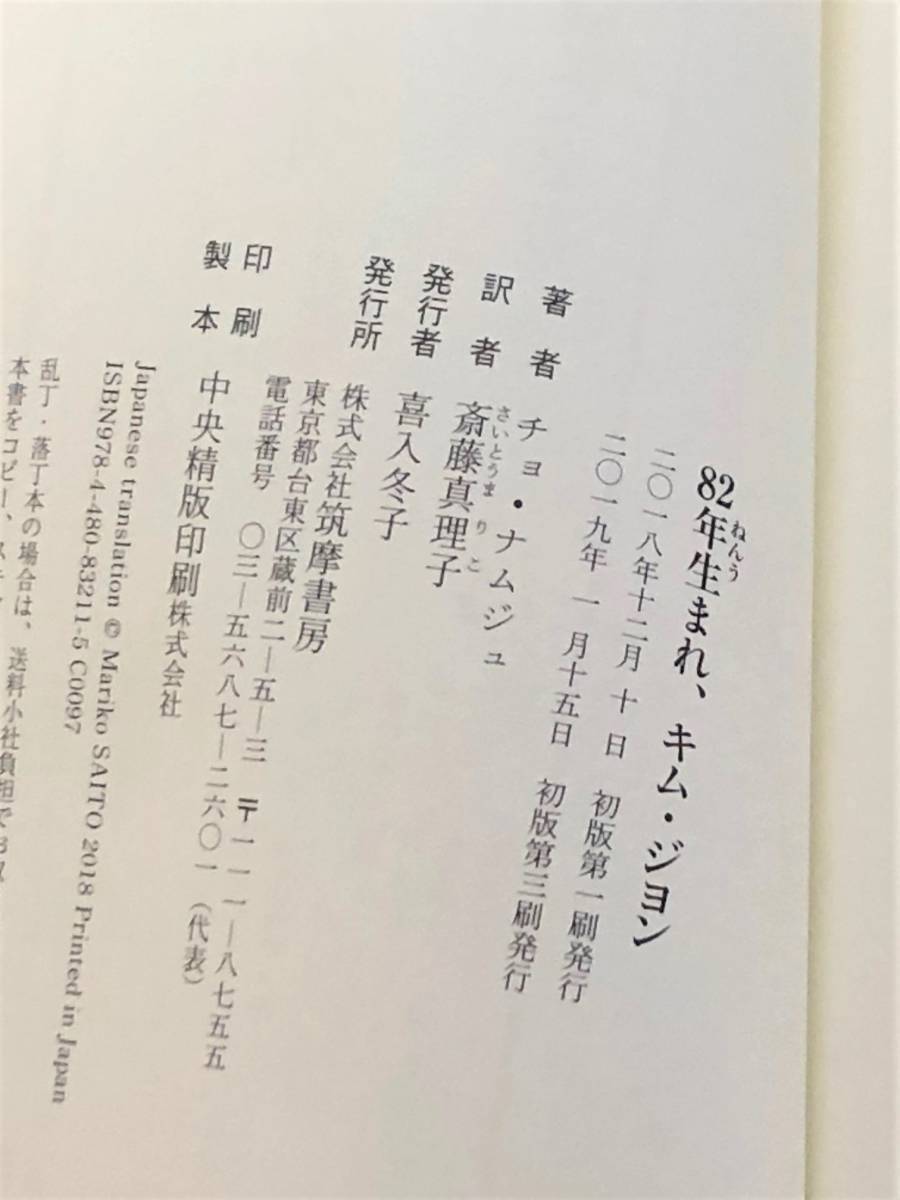 82年生まれ、キム・ジヨン
ねんう
二〇一八年十二月 十 日 初版第一刷発行
二〇一九年 一 月十五日 初版第三刷発行
著者 チョ・ナムジュ
訳者 斎藤真理子
さいとうまりこ
発行者 喜入冬子
発行所 株式会社筑摩書房
東京都台東区蔵前二―五―三 〒一一一―八七五五
電話番号 〇三―五六八七―二六〇一（代表）
印刷
製本 中央精版印刷株式会社
Japanese translation © Mariko SAITO 2018 Printed in Japan
ISBN978-4-480-83211-5 C0097
乱丁・落丁本の場合は、送料小社負担で
本書をコピー、